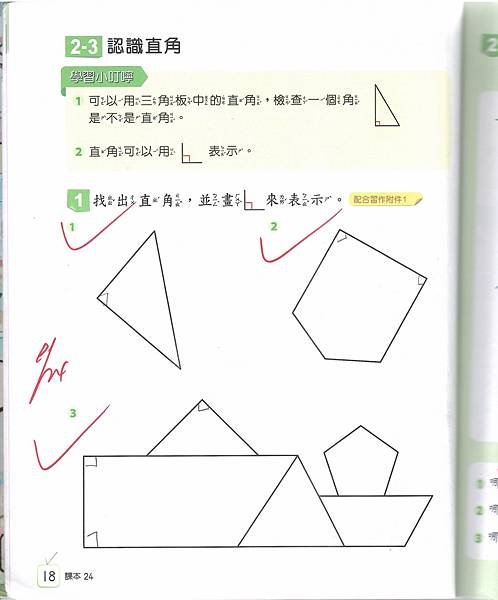 2-3 認識直角
學習小叮嚀
1 可以用三角板中的直角，檢查一個角
是不是直角。
2 直角可以用 表示。
1 找出直角，並畫 來表示。 配合習作附件1
1
2
3
18 課本 24
2
1 哪
2 哪
3 哪